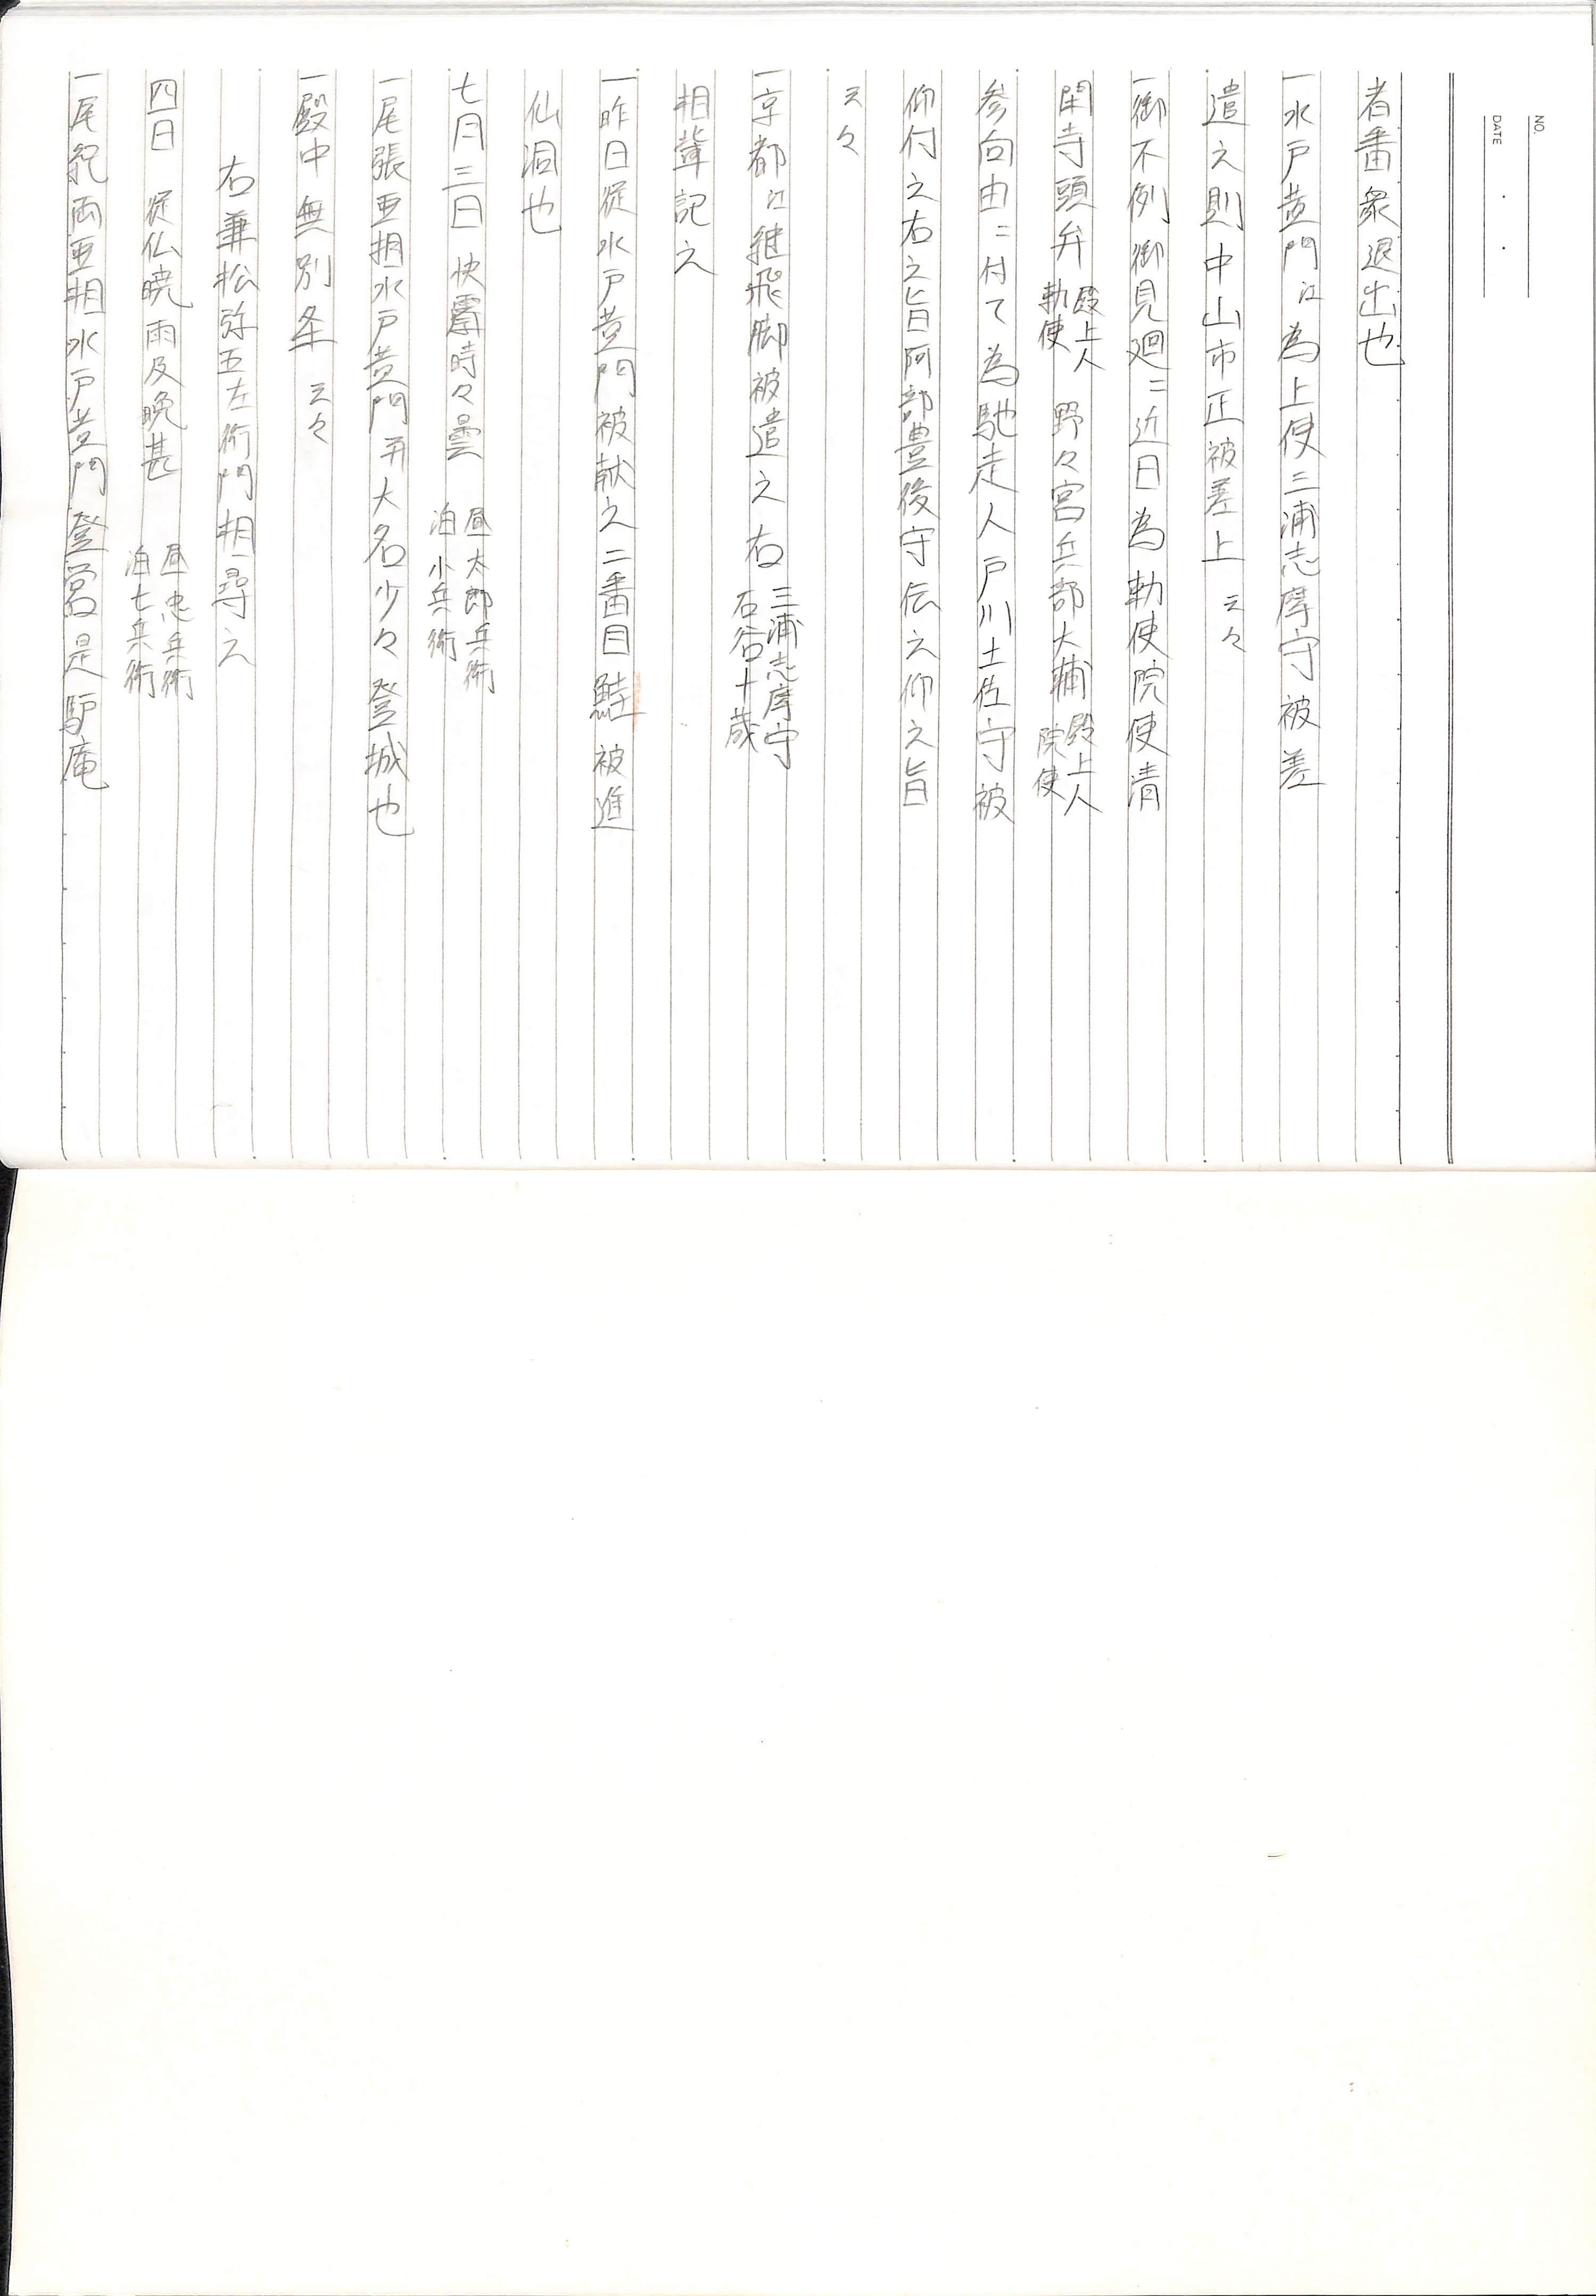 NO.
DATE ・ ・
者番衆退出也
一水戸黄門江為上使三浦志摩守被差
遣之則中山市正被差上 云々
一御不例御見廻ニ近日為勅使院使清
閑寺頭弁 殿上人 勅使 野々宮兵部大輔 殿上人 院使
参向由ニ付て為馳走人戸川土佐守被
仰付之右之旨阿部豊後守伝之仰之旨
云々
一京都江継飛脚被遣之右 三浦志摩守 石谷十蔵
相輩記之
一昨日従水戸黄門被献之二番目鮭被進
仙洞也
七月三日 快霽時々曇 昼太郎兵衛 泊小兵衛
一尾張亜相水戸黄門并大名少々登城也
一殿中無別条 云々
右兼松弥五左衛門相尋之
四日 従仏暁雨及晩甚 昼忠兵衛 泊七兵衛
一尾紀両亜相水戸黄門登営是驢庵